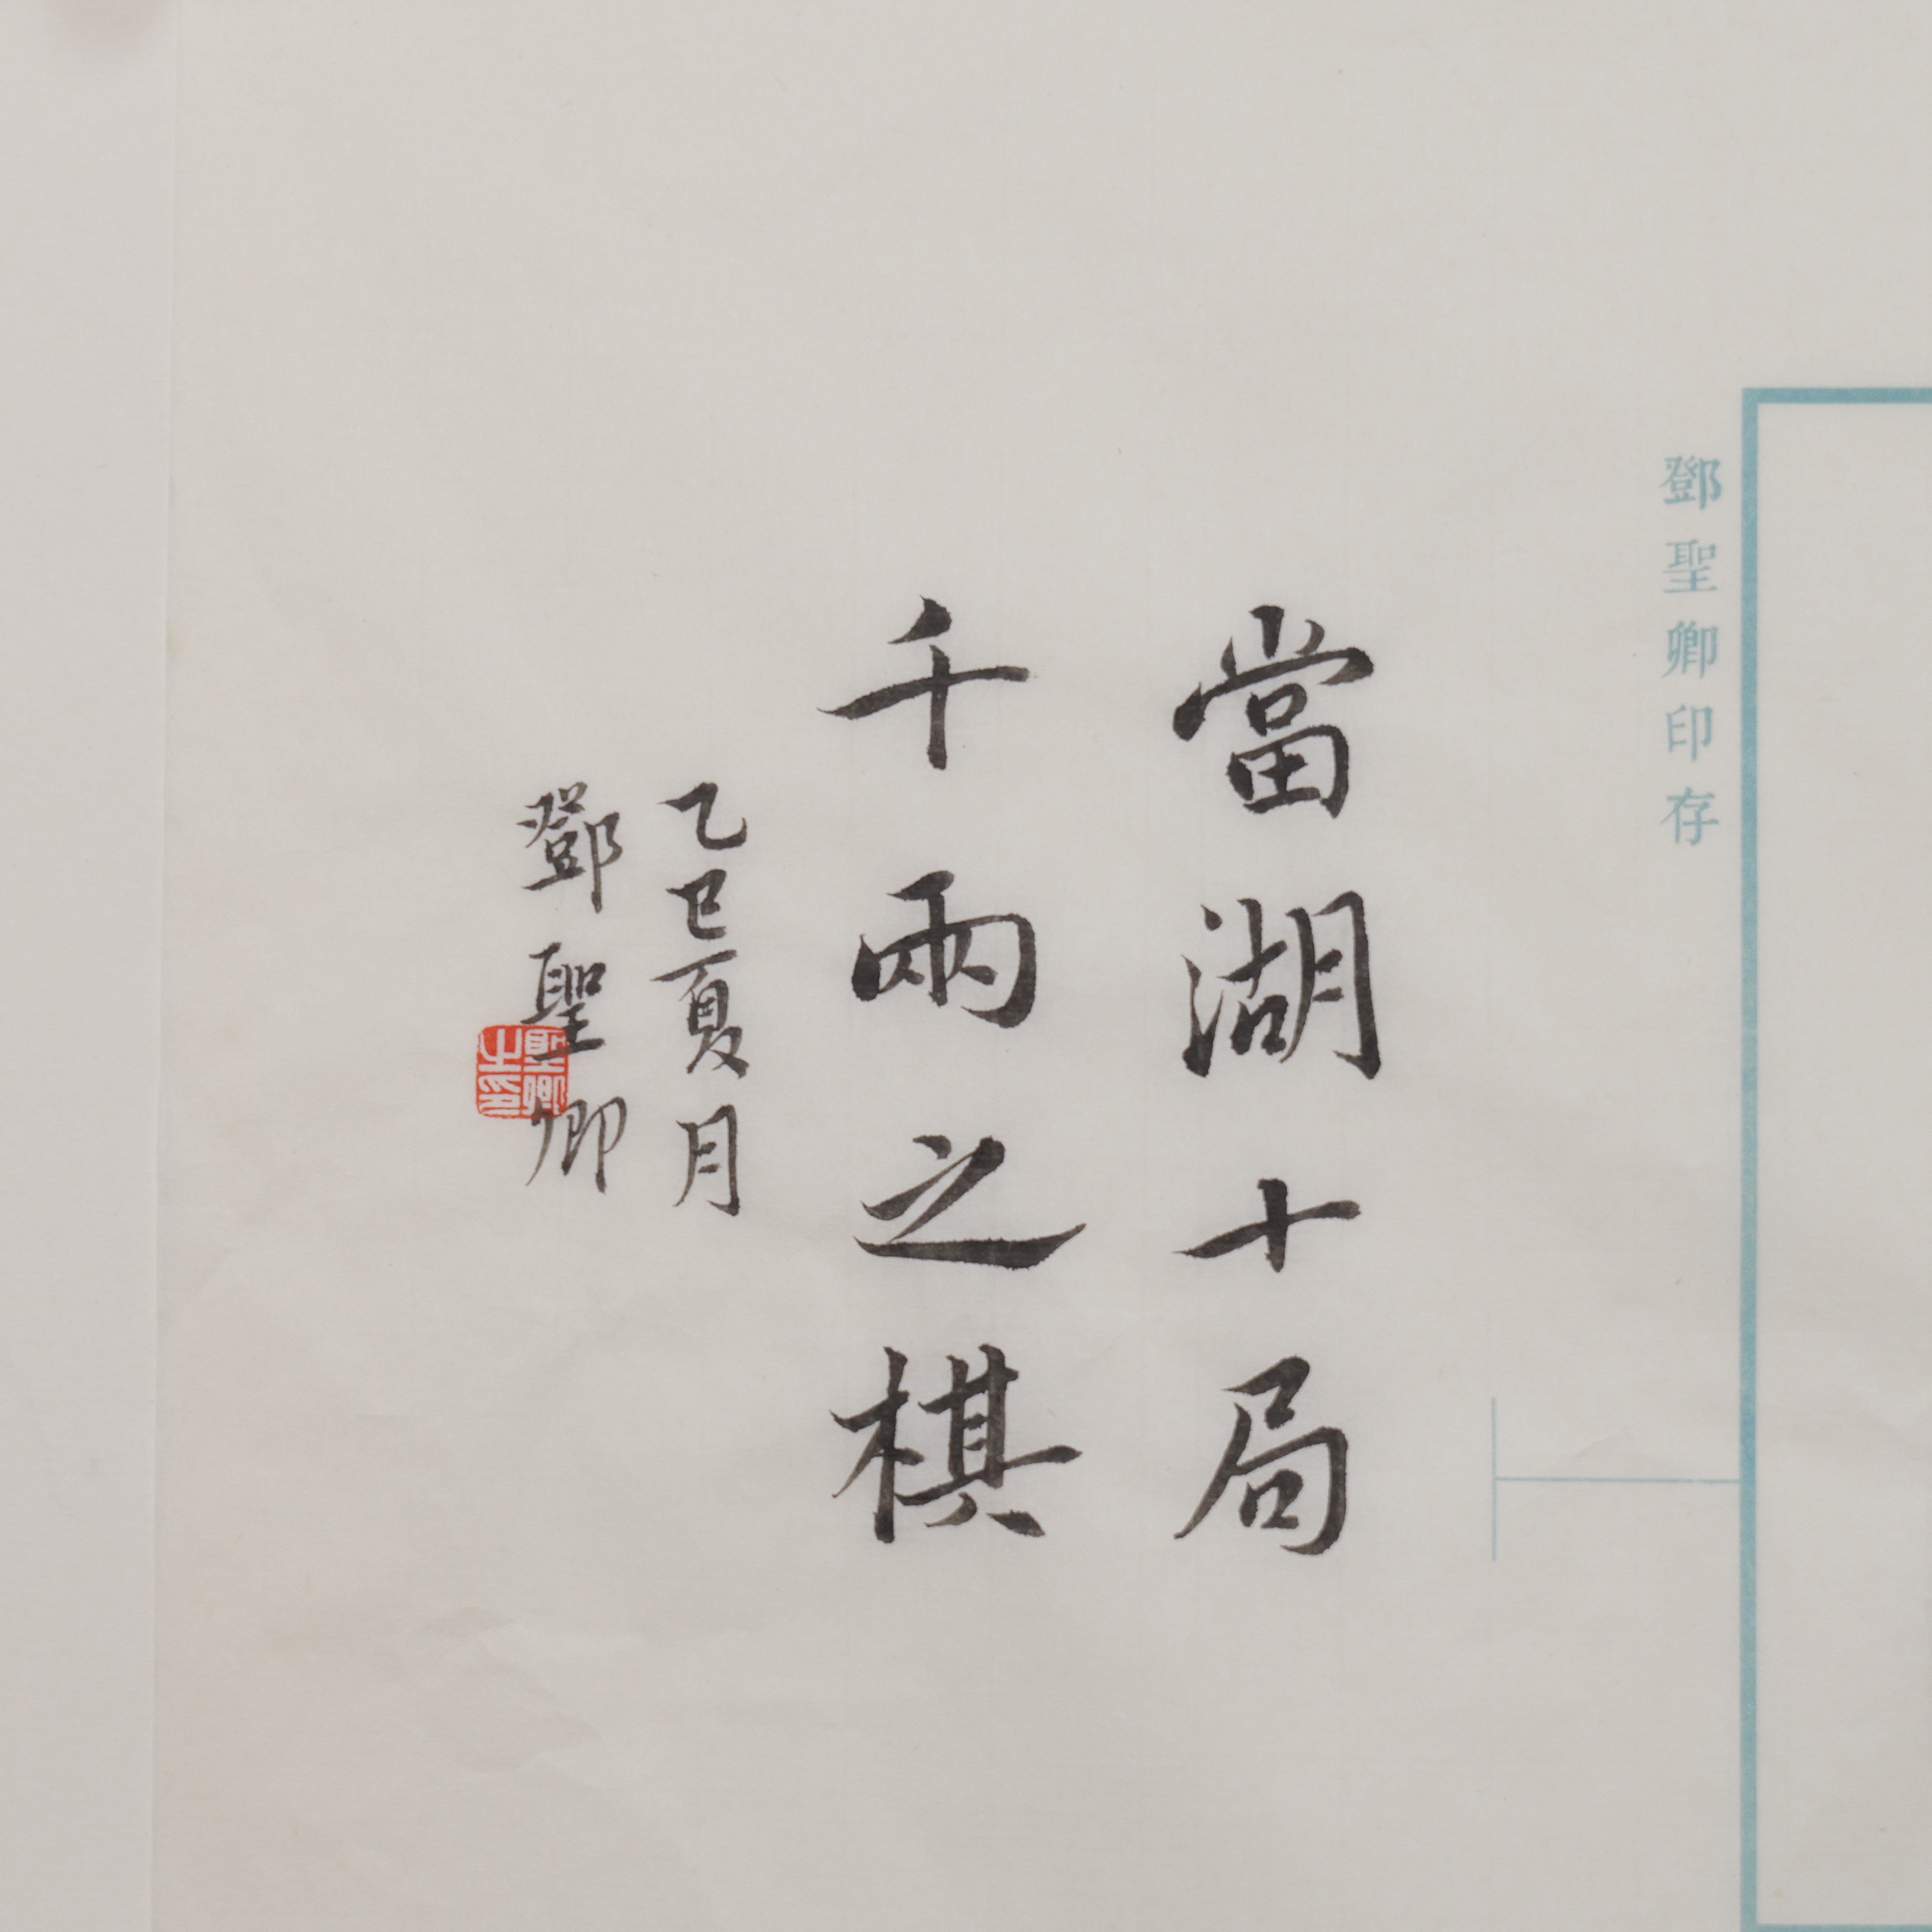 鄧聖卿印存
當湖十局
千兩之棋
乙巳夏月
鄧聖卿
聖卿之印